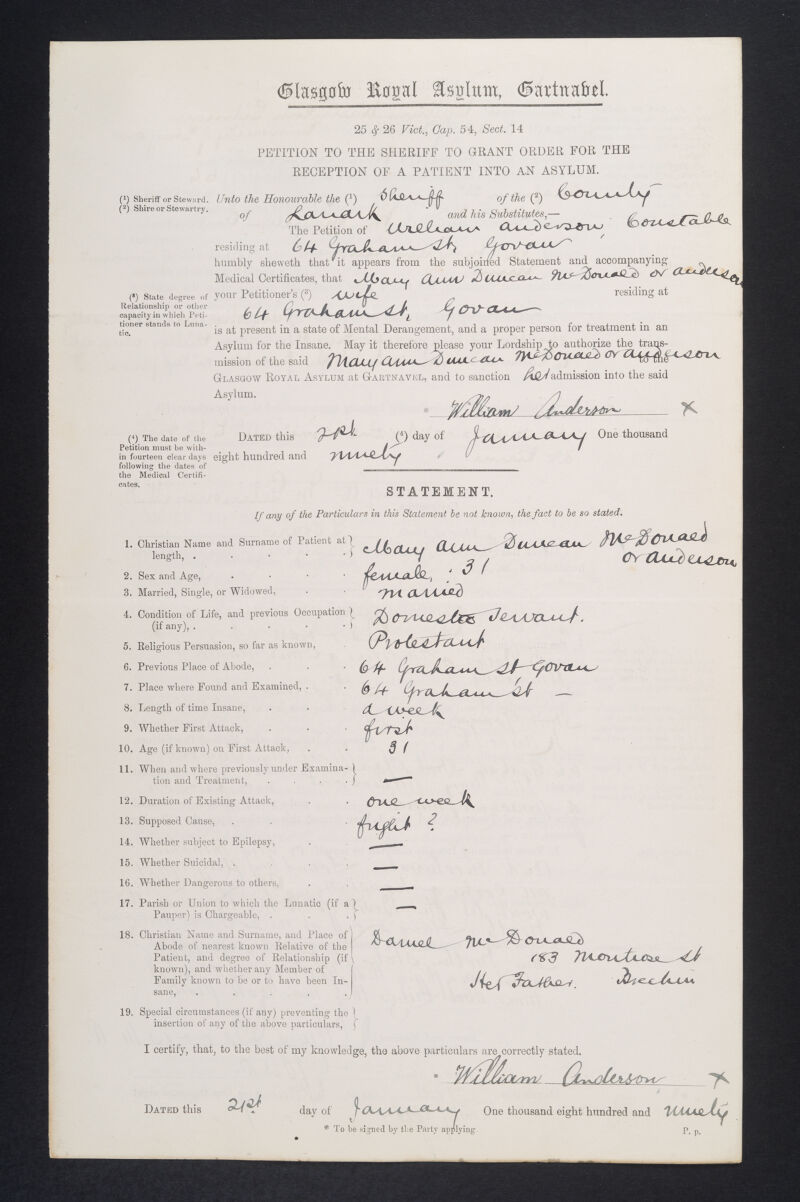 Glasgow Royal Asylum, Gartnabel.
25 & 26 Vict., Cap. 54, Sect. 14
PETITION TO THE SHERIFF TO GRANT ORDER FOR THE
RECEPTION OF A PATIENT INTO AN ASYLUM.
(1) Sheriff or Steward.
(2) Shire or Stewartry.
Unto the Honourable the (1) Sheriff of the (2) County
of Lanark and his Substitutes,—
The Petition of William Anderson, Constable
residing at 64 Graham St, Govan
humbly sheweth that it appears from the subjoined Statement and accompanying
Medical Certificates, that Mary Ann Duncan McDonald or Anderson
(3) State degree of
Relationship or other
capacity in which Peti-
tioner stands to Luna-
tic.
your Petitioner's (3) wife residing at
64 Graham St, Govan
is at present in a state of Mental Derangement, and a proper person for treatment in an
Asylum for the Insane. May it therefore please your Lordship to authorize the trans-
mission of the said Mary Ann Duncan McDonald or Anderson to the
GLASGOW ROYAL ASYLUM AT GARTNAVEL, and to sanction her admission into the said
Asylum.
* William Anderson x
(4) The date of the
Petition must be with-
in fourteen clear days
following the dates of
the Medical Certifi-
cates.
DATED this 21st (4) day of January One thousand
eight hundred and ninety
STATEMENT.
If any of the Particulars in this Statement be not known, the fact to be so stated.
1. Christian Name and Surname of Patient at
length, . Mary Ann Duncan McDonald
or Anderson
2. Sex and Age, female, 31
3. Married, Single, or Widowed, married
4. Condition of Life, and previous Occupation
(if any), . Domestic Servant.
5. Religious Persuasion, so far as known, Protestant
6. Previous Place of Abode, 64 Graham St Govan
7. Place where Found and Examined, 64 Graham St —
8. Length of time Insane, a week
9. Whether First Attack, first
10. Age (if known) on First Attack, 31
11. When and where previously under Examina-
tion and Treatment, —
12. Duration of Existing Attack, one week
13. Supposed Cause, fright ?
14. Whether subject to Epilepsy, —
15. Whether Suicidal, —
16. Whether Dangerous to others, —
17. Parish or Union to which the Lunatic (if a
Pauper) is Chargeable, —
18. Christian Name and Surname, and Place of
Abode of nearest known Relative of the
Patient, and degree of Relationship (if
known), and whether any Member of
Family known to be or to have been In-
sane,
Daniel McDonald
183 Montrose St
Her Father. Brechin
19. Special circumstances (if any) preventing the
insertion of any of the above particulars,
I certify, that, to the best of my knowledge, the above particulars are correctly stated.
* William Anderson x
DATED this 21st day of January One thousand eight hundred and ninety
* To be signed by the Party applying
P. p.